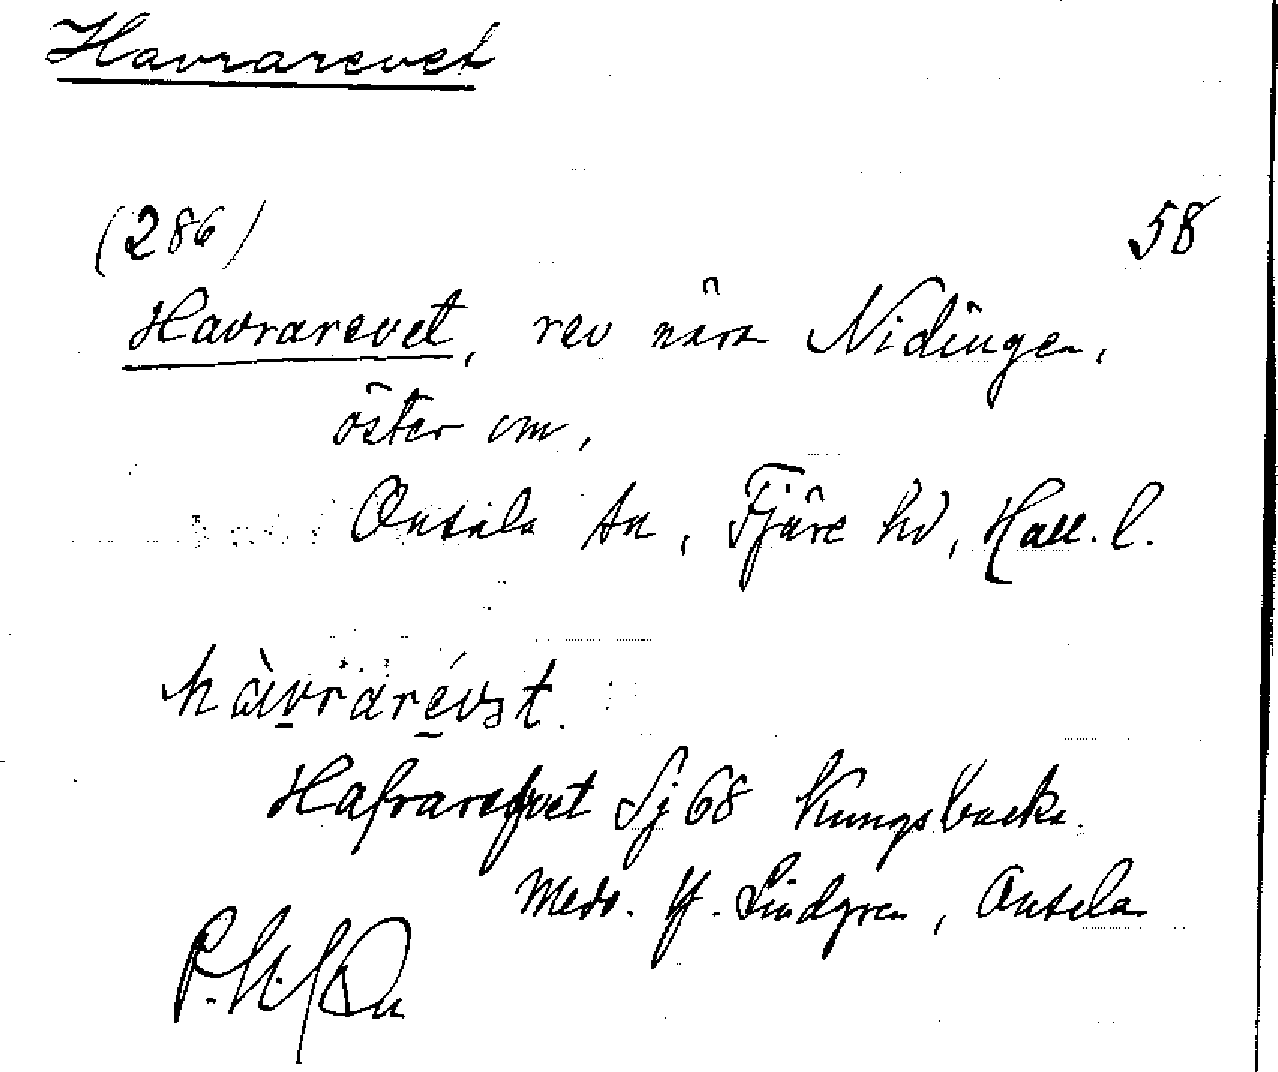 Havrarevet
(286) 58
Havrarevet, rev nära Nidingen,
öster om,
Onsala sn, Fjäre hd, Hall. l.
hàvrarévət.
Hafrarefvet Sj 68 Kungsbacka.
Medd. Lindgren, Onsala